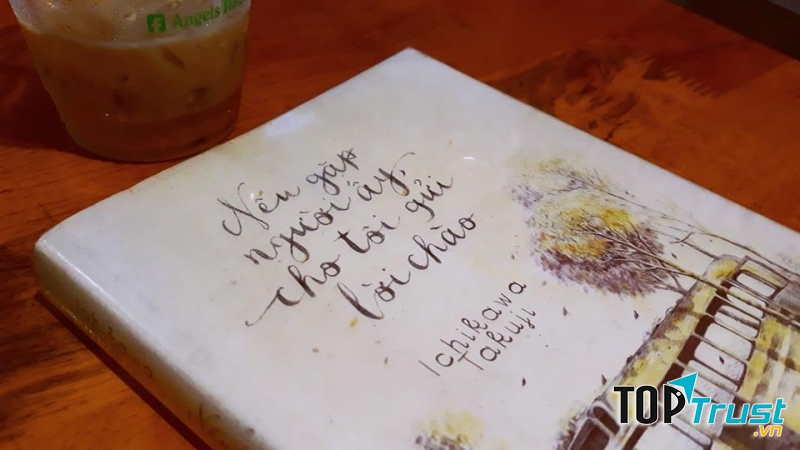 Angels
Nếu gặp
người ấy,
cho tôi gửi
lời chào
Ichikawa
Takuji
Ichikawa
TOPTrust
.vn